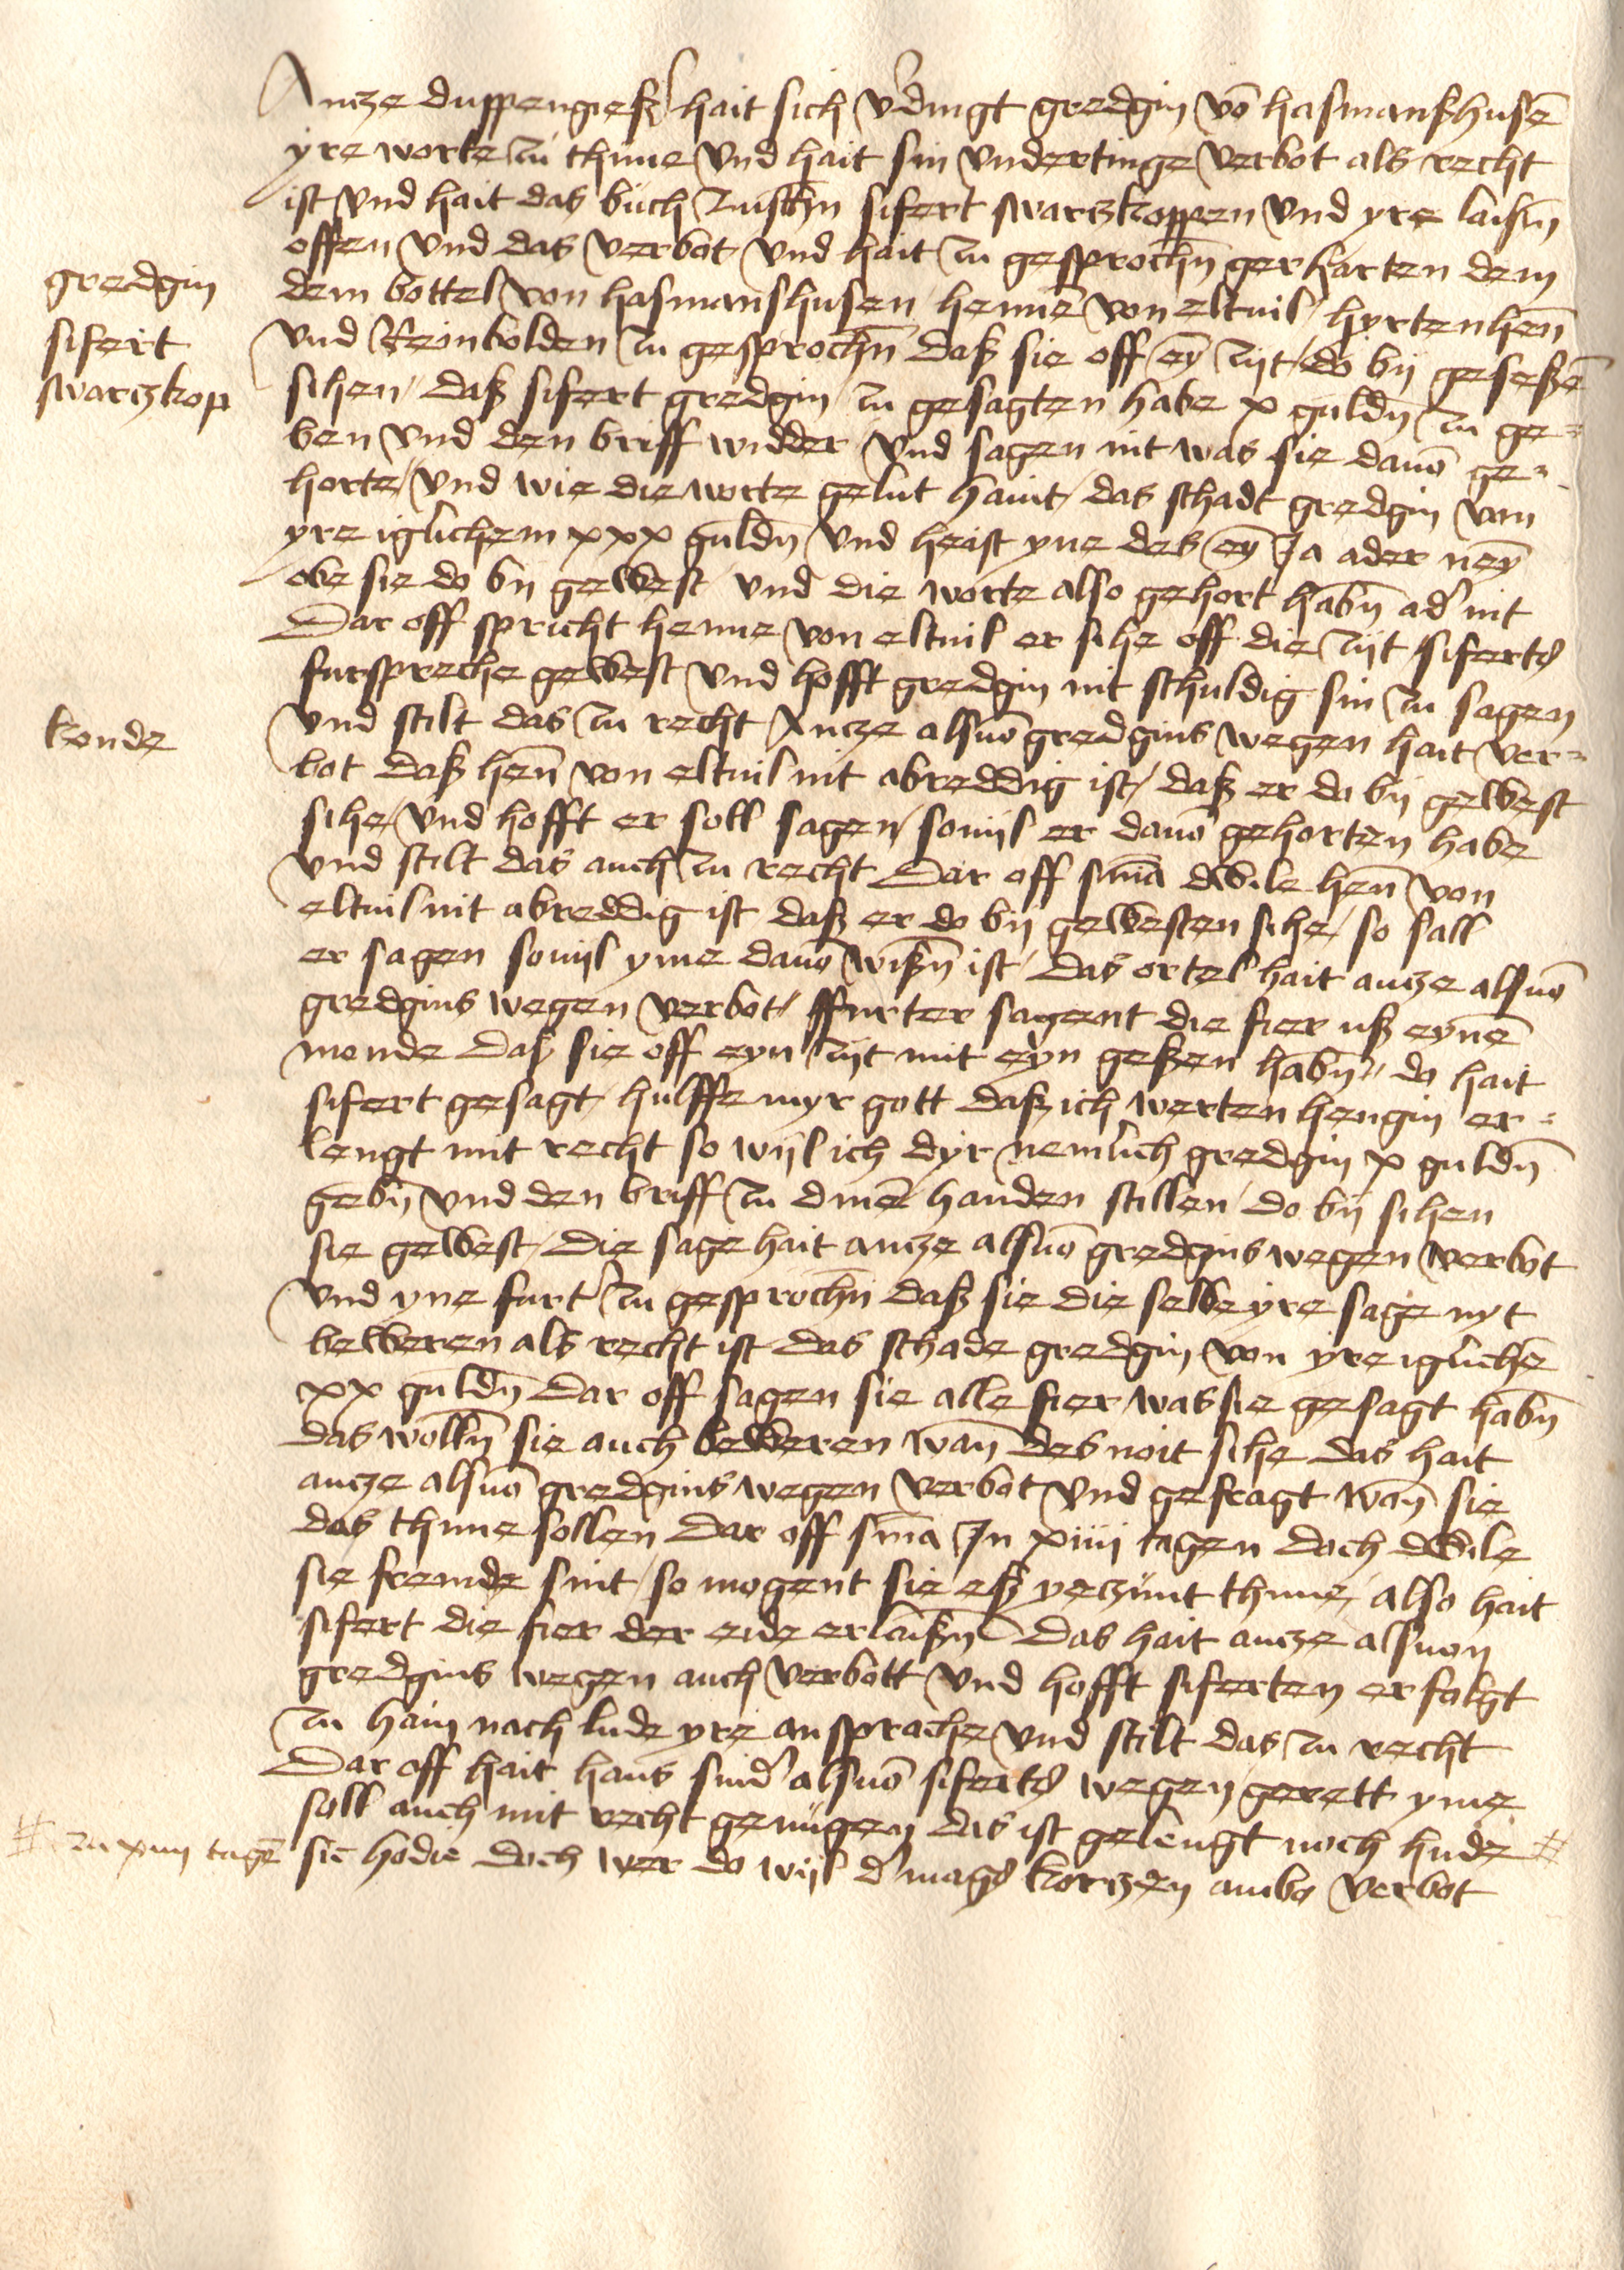 Antze duppengieß hait sich v'dingt gredgin vō hasmanßhusē
yre worte zu thune vnd hait sin vndertinge verbot als recht
ist vnd hait das buch zuschn sifert swartzkoppen vnd yre laißn
offen vnd das verbot vnd hait zu gesprochn gerharten dem
gredgin
sifert
swartzkop
dem bottel von hasmanshusen henne von eltuil hyrtenhen
vnd Reinbolden zu gesprochn daß sie off ey zijt do bij geseßē
sihen daß sifert gredgin zu gesagten habe x guldn zu ge=
ben vnd den briff widder vnd sagen nit was sie dauō ge=
horte vnd wie die worte gelut haint das schadt gredgin von
yre iglichem xxx guldn vnd heist yne des ey Ja ader ney
obe sie do bij gewest vnd die worte also gehort habn ad' nit
Dar off spricht henne von eltuil er sihe off die zijt siferts
furspreche gewest vnd hofft gredgin nit schuldig sin zu sagen
konde
vnd stilt das zu recht Antze alsuō gredgins wegen hait ver=
bot daß hen von eltuil nit abreddig ist daß er do bij gewest
sihe vnd hofft er soll sagen souijl er dauō gehorten habe
vnd stilt das auch zu recht Dar off sniā dwile hen von
eltuil nit abreddig ist daß er do bij gewesten sihe so sall
er sagen souijl yme dauō wißn ist Das ortel hait antze alsuō
gredgins wegen verbot ffurter sagent die fier uß eynē
monde daß sie off eyn zijt mit eyn geßen habn do hait
sifert gesagt hulffe myr gott daß ich werten hengin er=
lengt mit recht so wijl ich dyr nemlich gredgin x guldn
gebn vnd den briff zu dinē handen stillen do bij sihen
sie gewest Die sage hait antze alsuō gredgins wegen verbot
vnd yne furt' zu gesprochn daß sie die selbe yre sage nyt
beweren als recht ist das schade gredgin von yre iglichē
xx guldn Dar off sagen sie alle fier was sie gesagt habn
das wolln sie auch beweren wan des noit sihe das hait
antze alsuō gredgins wegen verbot vnd gefragt wan sie
das thune sollen Dar off sniā Jn xiiii tagen doch dwile
sie fremde sint so mogent sie eß yeczunt thune also hait
sifert die fier der eide erlaißn Das hait antze alsuon
gredgins wegen auch verbott vnd hofft siferten erfolgt
zu hain nach lude yre ansprache vnd stilt das zu recht
Dar off hait hans snid' alsuō siferts wegen gerett yme
soll auch mit recht genugen das ist gelengt noch hude #
# zu xiiii tagē
sic hodie doch wer do wijl d' mags kortzen ambo verbot